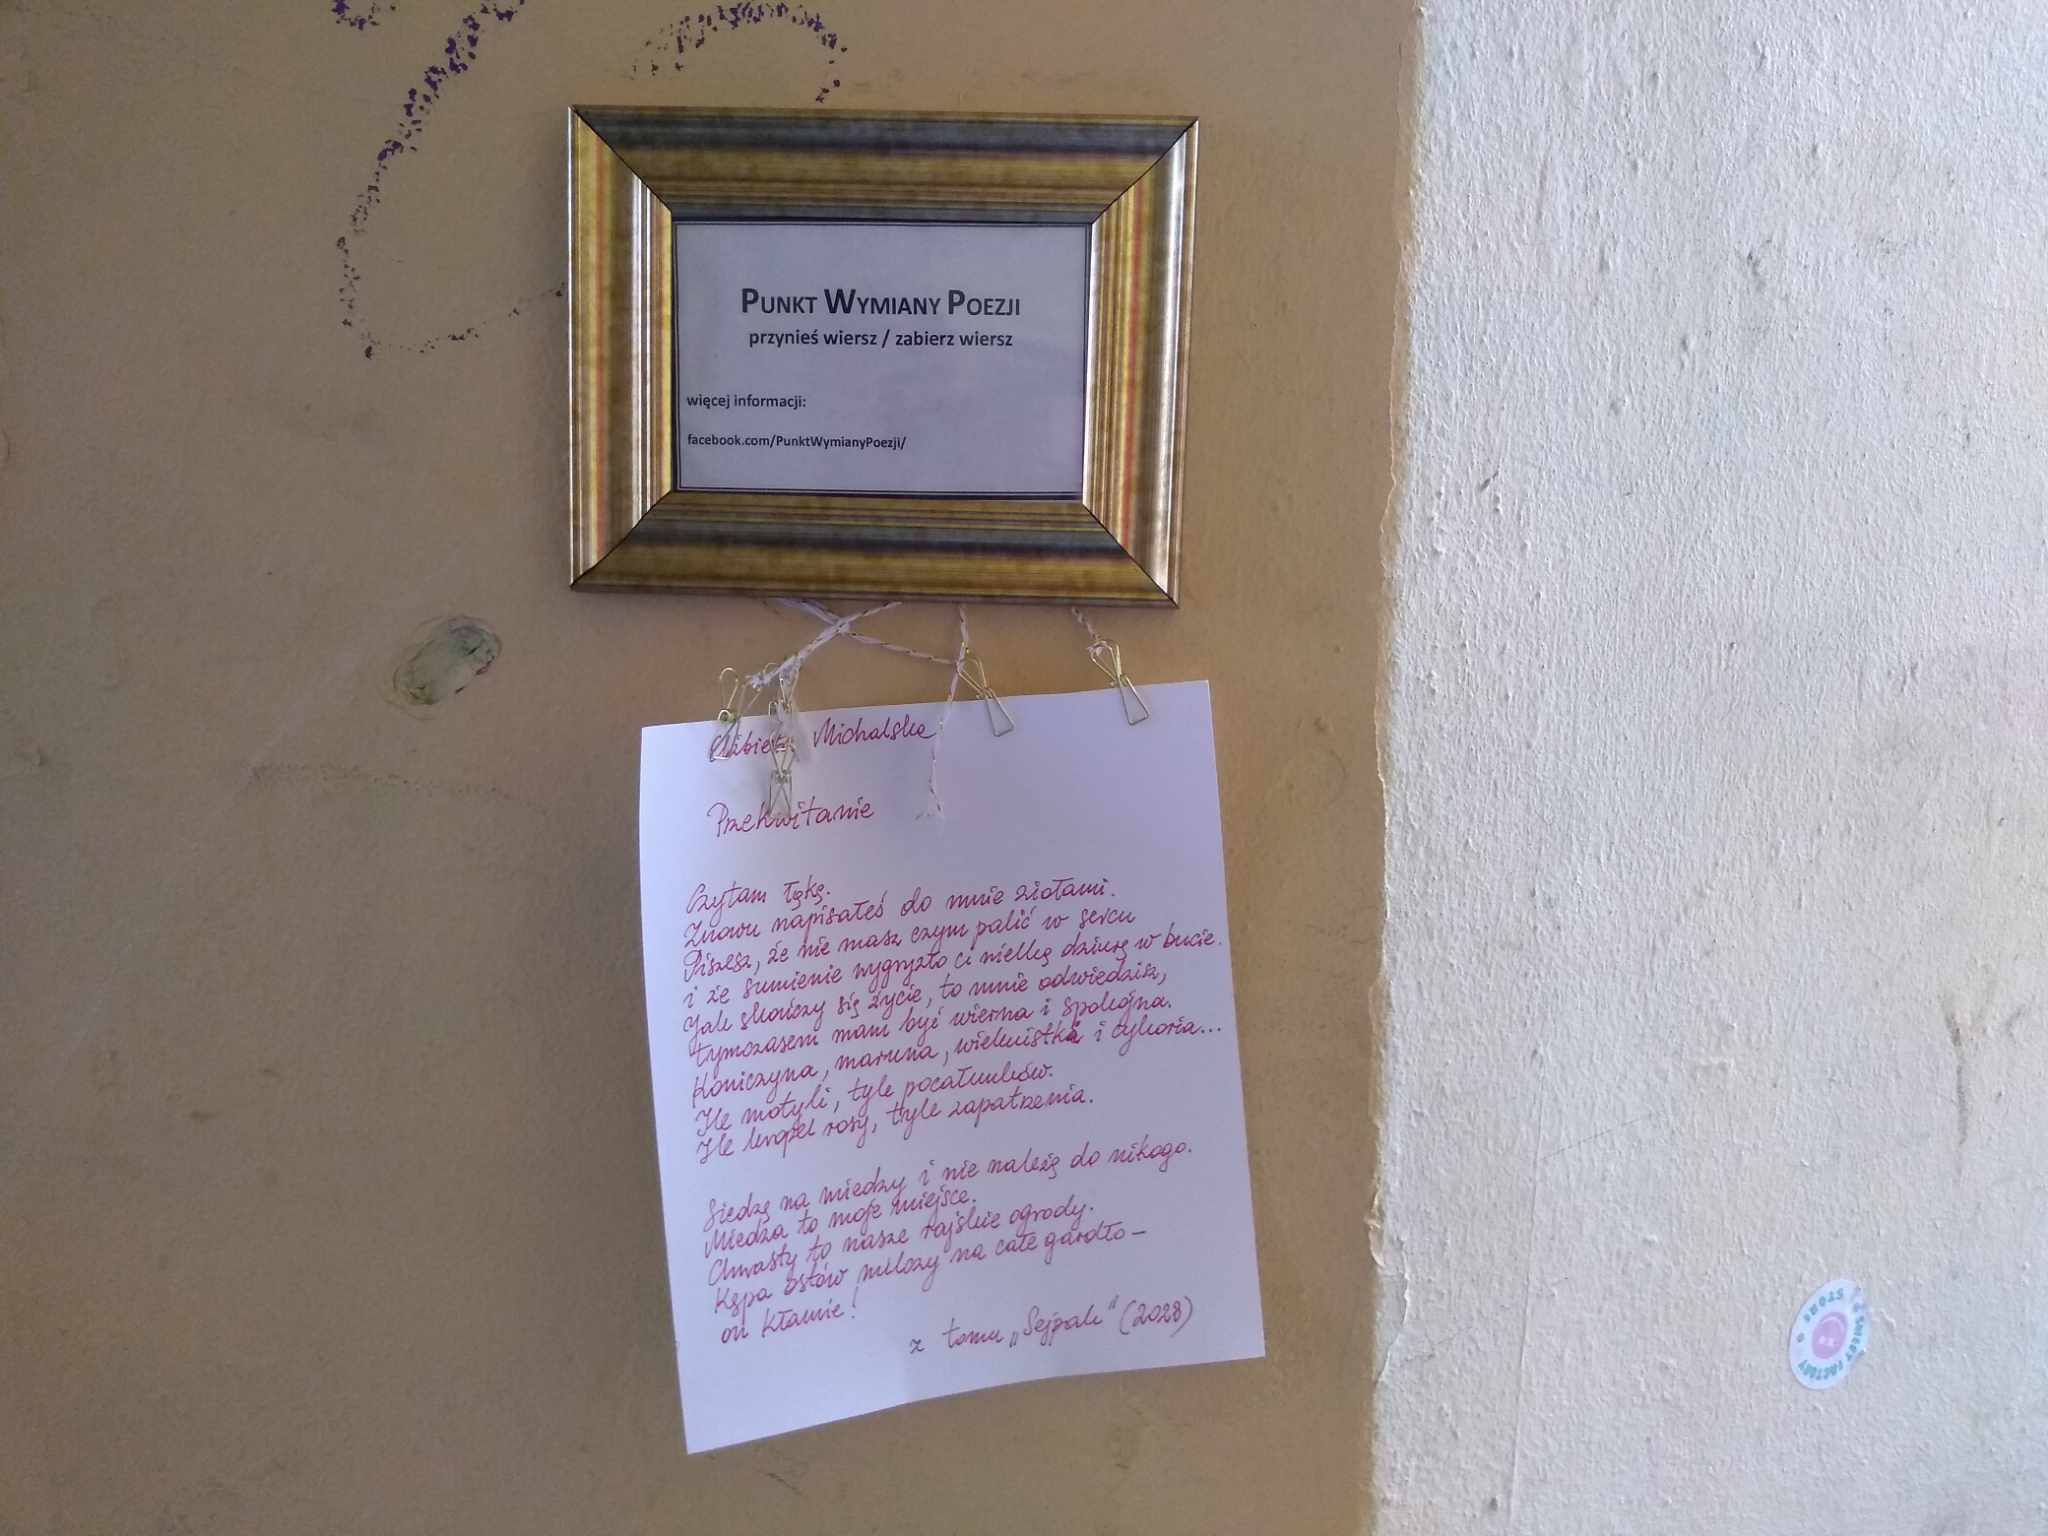 PUNKT WYMIANY POEZJI
przynieś wiersz / zabierz wiersz
więcej informacji:
facebook.com/PunktWymianyPoezji/
Elżbieta Michalska
Przekwitanie
Czytam łąkę.
Znowu napisałeś do mnie ziołami.
Piszesz, że nie masz czym palić w sercu
i że sumienie wygryzło ci wielką dziurę w bucie.
Jak skończy się życie, to mnie odwiedzisz,
tymczasem mam być wierna i spokojna.
Koniczyna, maruna, wiekuistka i cykoria...
Ile motyli, tyle pocałunków.
Ile kropel rosy, tyle zapatrzenia.
Siedzę na miedzy i nie należę do nikogo.
Miedza to moje miejsce.
Chwasty to nasze rajskie ogrody.
Kępa ostów milczy na całe gardło –
on kłamie!
z tomu „Sejpak” (2028)
SWEET FACTORY STORE